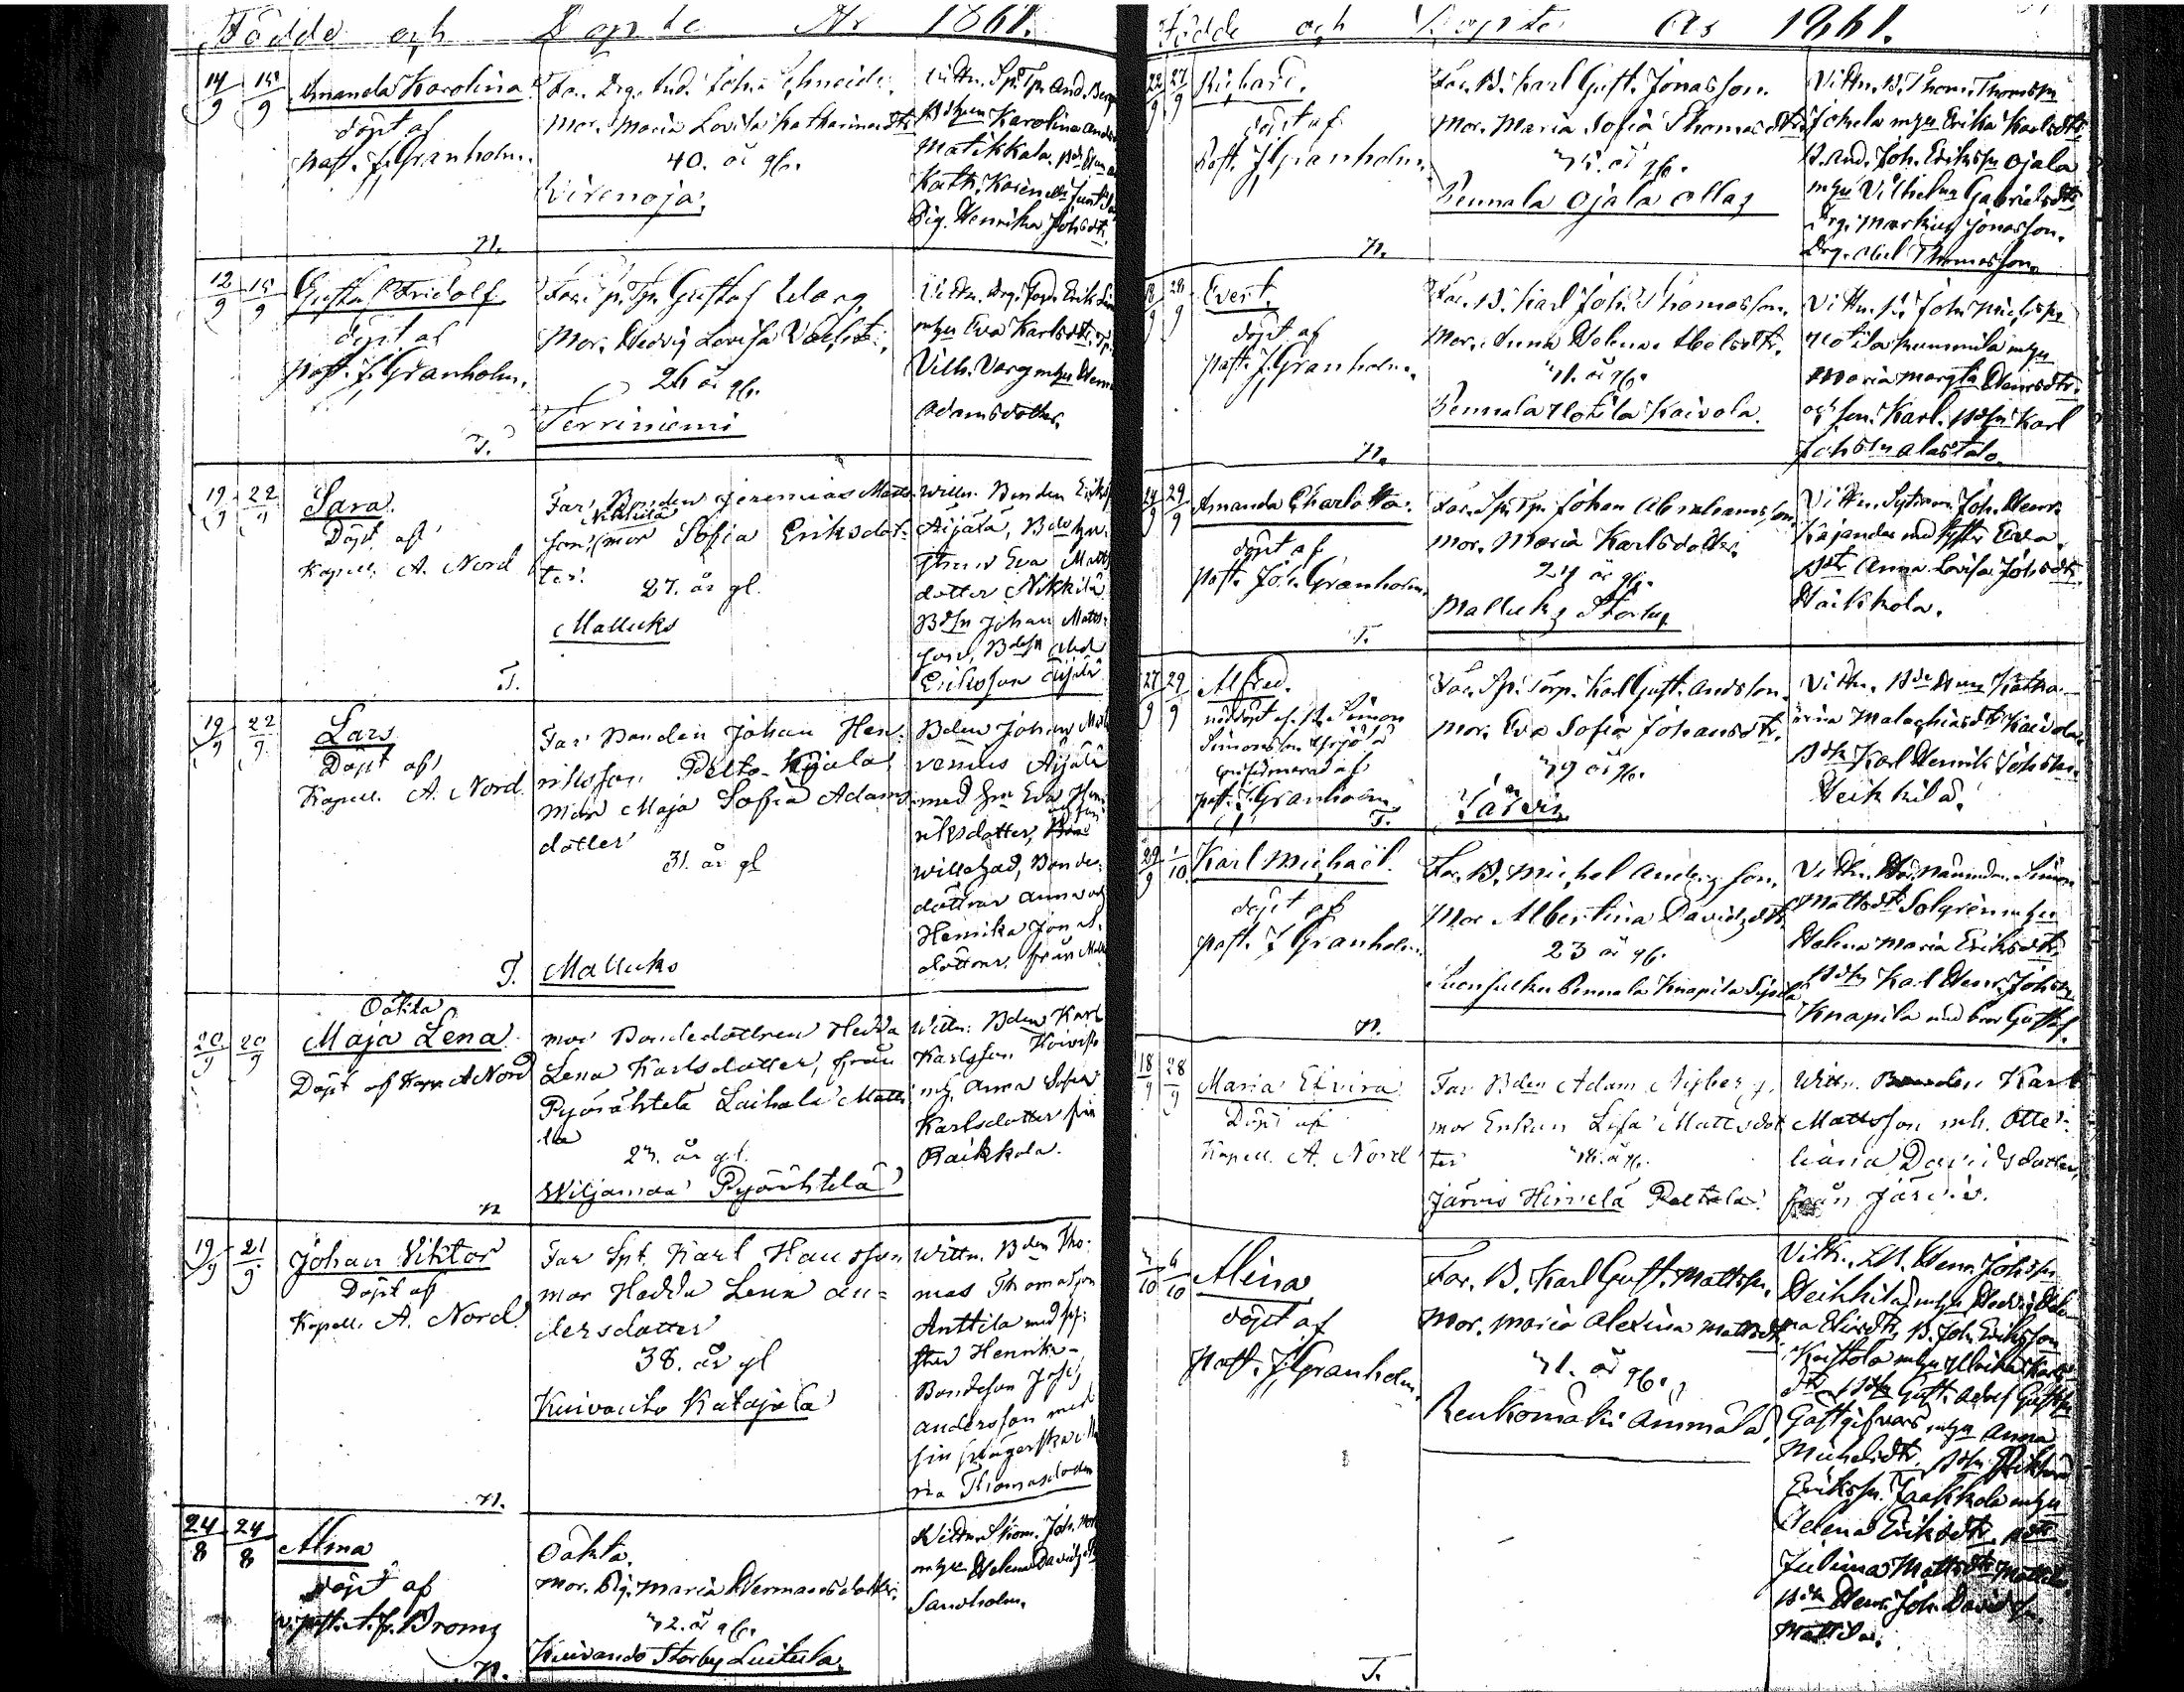 Födde och Döpte År 1861.
14/9 15/9 Amanda Karolina
döpt af
past. J. Granholm.
n.
Far. Drg. And. Joh. Schneider
Mor. Maria Lovisa Katharinadtr
40. år gl.
Virenoja
Vittn. Sp. Tp. And. Berg
Karolina Anders
Matikkala
Pig. Henrika Johsdtr.
12/9 15/9 Gustaf Fridolf
döpt af
past. J. Granholm.
T.
Far Sp. Tp. Gustaf Warg
Mor. Hedvig Lovisa
26 år gl.
Terriniemi
Vittn. Drg. Jos. Erik
mhu Eva Karlsdtr. Tp.
Vilh. Varg mhu
Adamsdotter.
19/9 22/9 Sara.
Döpt af
Kapell. A. Nord
T.
Far Bonden Jeremias Matts-
Nikkilä
son, mor Sofia Eriksdot-
ter.
27. år gl.
Mallucks
Wittn. Bonden Eriks
Äijälä,
Eva Matts
dotter Nikkilä
Bdsn Johan Matts-
son, Bdsn Abel
Eriksson Äijälä
19/9 22/9 Lars
Döpt af
Kapell. A. Nord.
T.
Far Bonden Johan Hen-
riksson, Pelto-
mor Maja Sofia Adams
dotter
31. år gl
Mallucks
Bden Johan
Äijälä
med hru Eva Hen
riksdotter,
Willehad, Bonde-
döttrar Anna och
Henrika Jon
döttrar, från
20/9 20/9 Oäkta
Maja Lena
Döpt af Kap. A Nord
n
mor Bondedottren Hedda
Lena Karlsdotter, från
Pyörähtelä Laihala Matti
la
23. år gl.
Wiljamaa Pyörähtelä
Wittn. Bden Karl
Karlsson
mh. Anna Sofia
Karlsdotter från
Raikkola.
19/9 21/9 Johan Viktor
Döpt af
Kapell. A. Nord
n.
Far Spt. Karl Hansson
mor Hedda Lena An-
dersdotter
38. år gl
Kuivanto Katajala
Wittn. Bden Tho-
mas Thomasson
Anttila med sy-
ster Henrika -
Bondeson Josef
Andersson med
sin svägerska Ma
ria Thomasdotter
24/8 24/8 Alma
döpt af
v. past. A. F. Bromg
n.
Oäkta.
Mor. Pig. Maria Hermansdotter.
42. år gl.
Kuivando Storby Luitula
Vittn. Skom. Joh.
mhu Helena Davidsdtr
Sandholm.
Födde och Döpte År 1861.
22/9 27/9 Richard.
döpt af
Past. J. Granholm.
n.
Far. B. Karl Gust. Jonasson.
Mor. Maria Sofia Thomasdtr
45. år gl.
Pennala Ojala Ollas
Vittn. B. Thom. Thomsson
Jokela mhu Erika Karlsdtr
B. And. Joh. Eriksson Ojala
mhu Vilhelma Gabrielsdtr
Drg. Markus Jonasson.
Drg. Abel Thomasson.
18/9 28/9 Evert.
döpt af
past. J. Granholm.
n.
Far. B. Karl Joh. Thomasson.
Mor. Anna Helena Abelsdtr.
41. år gl.
Pennala Hotila Kaivola.
Vittn. B. Joh. Michsson
Hotila Kummila mhu
Maria Margta Henrsdtr.
och son Karl. Bdsn Karl
Johsson Alastalo.
24/9 29/9 Amanda Charlotta.
döpt af
past. Joh. Granholm.
T.
Far. Sp. Tp. Johan Abrahamsson.
Mor. Maria Karlsdotter.
24 år gl.
Mallucks Storby
Vittn. Sytman. Joh. Henr.
Kajander med syster Eva.
Bdtr Anna Lovisa Johsdtr
Häikkola.
27/9 29/9 Alfred.
nöddöpt af B. Simon
Simonsson Yrjölä
confirmerad af
past. J. Granholm.
T.
Far. Sp. Torp. Karl Gust. Andsson.
Mor. Eva Sofia Johansdtr.
49 år gl.
Järvis
Vittn. Bde Katha-
rina Malachiasdtr Kaivola
Bdsn Karl Henrik Johsson
Heikkilä.
29/9 1/10 Karl Michaël.
döpt af
past. J. Granholm.
n.
Far. B. Michel Andersson.
Mor Albertina Davidsdtr
23 år gl.
Luonsulku Pennala Knapila Sipilä
Vittn. Simon
Mattsson Solgren mhu
Helena Maria Eriksdtr
Bdsn Karl Henr. Johsson
Knapila med bror Gustaf.
18/9 28/9 Maria Elvira
Döpt af
Kapell. A. Nord
Far Bden Adam Nyberg.
mor Enkan Lisa Mattsdot
ter
Järvis Hirvelä Peltola.
Wittn. Bonden Karl
Mattsson mh. Otte-
liana Davidsdotter,
från Järvis.
4/10 6/10 Alina
döpt af
Past. J. Granholm.
T.
Far. B. Karl Gust. Mattsson.
Mor. Maria Alexina Mattsdtr
41. år gl.
Renkomäki Ämmälä
Vittn. Henr. Johsson
Heikkilä mhu Hedvig Hele-
na Eliedtr, B. Joh. Eriksson
Koistola mhu Ulrika Karls-
dtr Bdsn Gust. Adolf Gustsson
Gästgifvars mhu Anna
Michelsdtr,
Eriksson Jaakkola mhu
Helena Eriksdtr, Bdtr
Julina Mattsdtr Mattila
Bdsn Henr. Joh. Davidsson
Mattila.